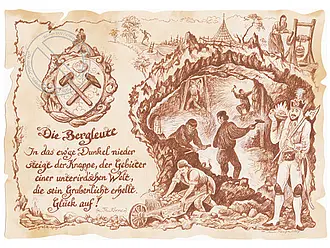 Die Bergleute
In das ew'ge Dunkel nieder
steigt der Knappe, der Gebieter
einer unterirdschen Welt,
die sein Grubenlicht erhellt.
Glück auf!